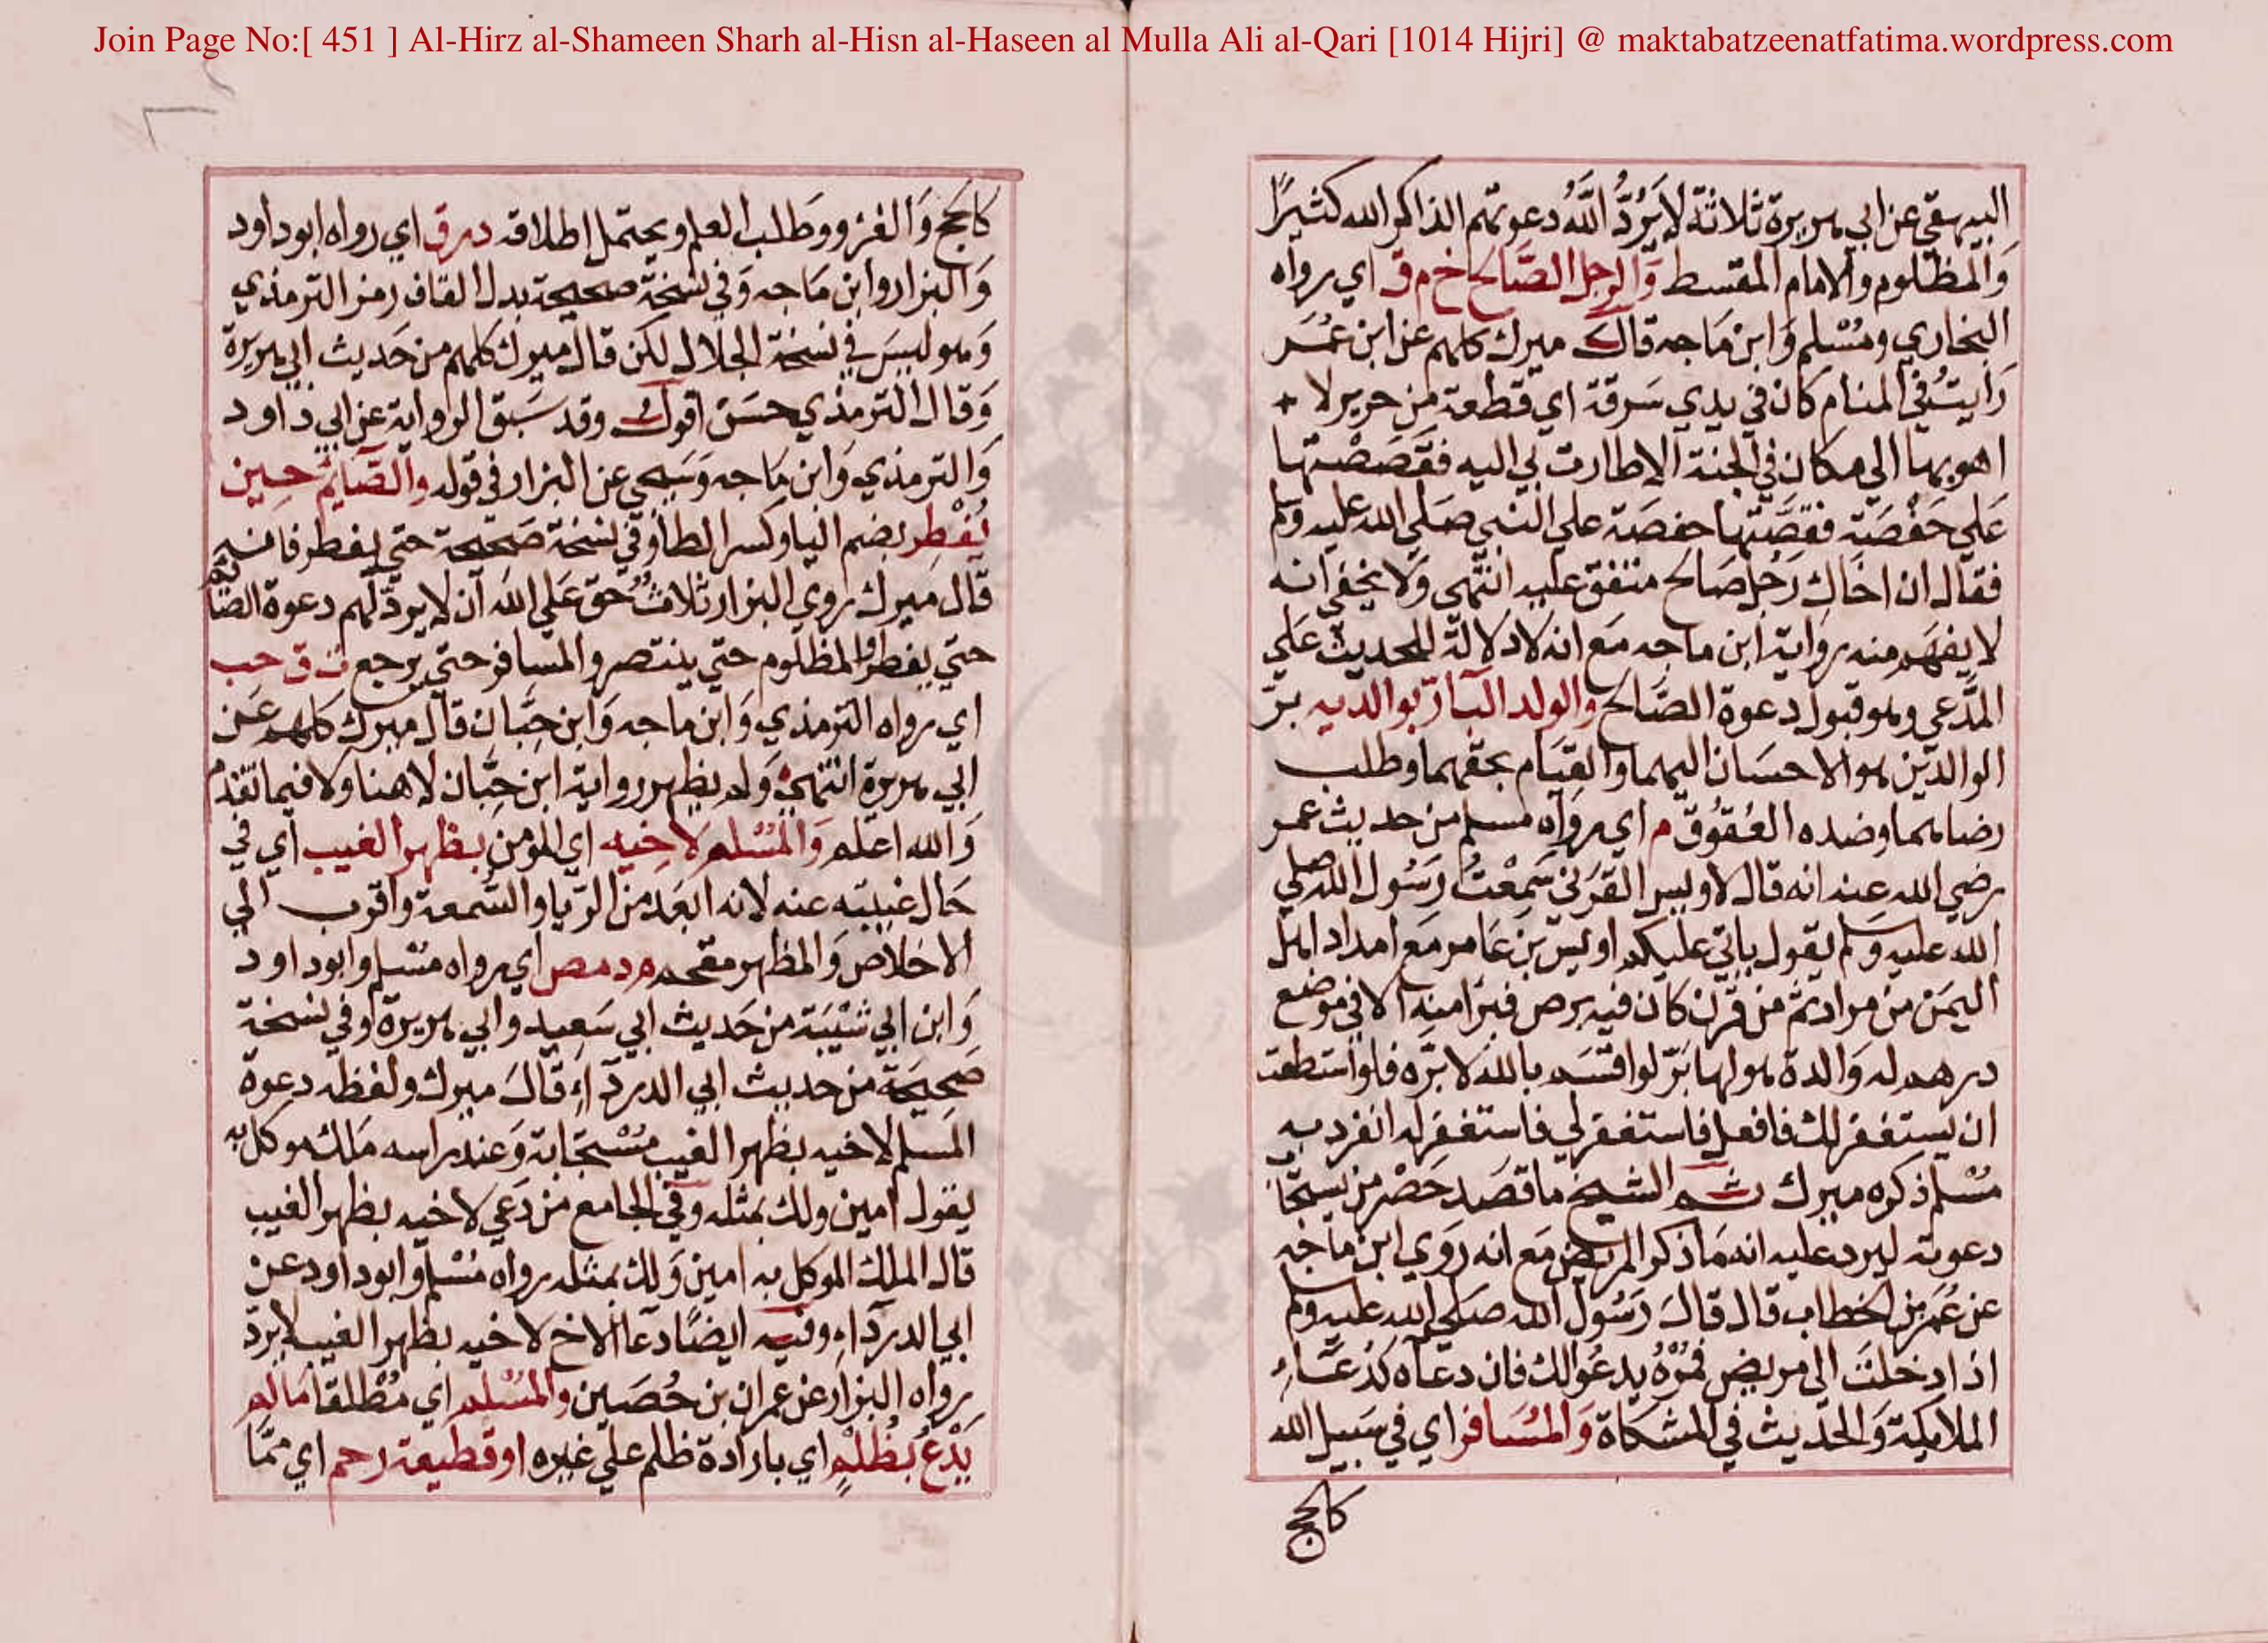 Join Page No:[ 451 ] Al-Hirz al-Shameen Sharh al-Hisn al-Haseen al Mulla Ali al-Qari [1014 Hijri] @ maktabatzeenatfatima.wordpress.com
البيهقي عن ابي هريرة ثلاثة لا يَرُدُّ اللَّهُ دعوتهم الذاكر الله كثيرًا
وَالمظلوم والامام المقسط وَالرجل الصَّالح خ م ق اي رواه
البخاري ومُسْلم وَابن مَاجه قال ميرك كلهم عن ابن عُمَر
رَايتُ في المنام كان في يدي سَرقة اي قطعة من حرير لا
اهوي بها الي مكان في الجنة الا طارت بي اليه فقصَصْتها
عَلي حَفْصَة فقصَّتها حفصَة علي النبي صَلي الله عليه وسلم
فقال ان اخَاك رَجُل صَالح متفق عليه انتهي وَلا يخفي انه
لا يفهَم منه رواية ابن ماجه مَع انه لا دلالة للحديث عَلي
المدَّعي وهو قبول دعوة الصَّالح والولد البَارّ بوالديه برّ
الوالدَين هو الاحسَان اليهما وَالقيَام بحقهما وطلب
رضاهما وضده العُقوُق م اي رواه مسلم من حديث عمر
رضي الله عنه انه قال لاويس القَرَني سَمِعْتُ رَسُول الله صلي
الله عليه وَسَلم يقول ياتي عليكم اويس بن عَامر مَع امداد اهل
اليمَن من مراد ثم من قَرَن كان فيه برص فبرَا منه الا في موضع
درهم له وَالدة هو لها بَرّ لو اقسَم بالله لابَرّه فلو استطعت
ان يستغفر لك فافعل فاستغفر لي فاستغفر له انفرد به
مُسْلم ذكره ميرك ثم الشيخ ما قصَد حَصْر من يستجَاب
دعوته ليرد عليه انه مَا ذكر المريض مَع انه رَوَي ابن ماجه
عن عُمَر بن الخطاب قال قالَ رَسُول الله صَلي الله عليه وسلم
اذا دخلتَ الي مريض فمُرْهُ يدعُو لك فان دعَاه كدُعَاءِ
الملايكة وَالحَديث في المشكاة وَالمُسَافر اي في سَبيل الله
كالحج
كالحج وَالغزو وطلب العلم ويحتمل اطلاقه د ر ق اي رواه ابوداود
وَالبزار وابن مَاجه وَفي نسخة صحيحة بدل القاف رمز الترمذي
وَهو ليسَ في نسخة الجلال لكن قال ميرك كلهم من حَديث ابي هريرة
وَقال الترمذي حسَن اقول وقد سَبق الرواية عن ابي داود
وَالترمذي وَابن مَاجه وَسَيجي عن البزار في قوله والصَّايم حين
يُفْطِر بضم اليا وكسر الطا وفي نسخة صَحيحة حتي يفطر
قال ميرك روي البزار ثلاثٌ حق عَلي الله ان لا يردّ لهم دعوة الصَّايم
حتي يفطر والمظلوم حتي ينتصر والمسافر حتي يرجع ت ق حب
اي رواه الترمذي وَابن ماجه وَابن حِبَّان قال ميرك كلهم عَن
ابي هريرة انتهي وَلم يظهر رواية ابن حِبَّان لا هنا ولا فيما تقدم
وَالله اعلم وَالمُسْلم لاخِيه اي المؤمن بظهر الغيب اي في
حَال غيبته عنه لانه ابعَد من الرّيا والسُّمعة واقرب الي
الاخلاص وَالمظهر مقحم م د مص اي رواه مسْلم وابوداود
وَابن ابي شَيْبَة من حَديث ابي سَعيد وابي هريرة وفي نسخة
صَحيحَة من حديث ابي الدرداءِ قالَ ميرك ولفظه دعوة
المسلم لاخيه بظهر الغيب مُسْتجَابة وَعند راسه مَلك موكل به
يقول امين ولك بمثله وفي الجامع من دَعي لاخيه بظهر الغيب
قال الملك الموكل به امين وَلك بمثله رواه مُسْلم وابوداود عن
ابي الدرداءِ وفيه ايضًا دعا الاخ لاخيه بظهر الغيب لا يردّ
رواه البزار عن عمران بن حُصَين والمُسْلم اي مُطلقا مَالم
يَدْعُ بظُلْمٍ اي بارادة ظلم علي غيره او قطيعة رحم اي ممّا